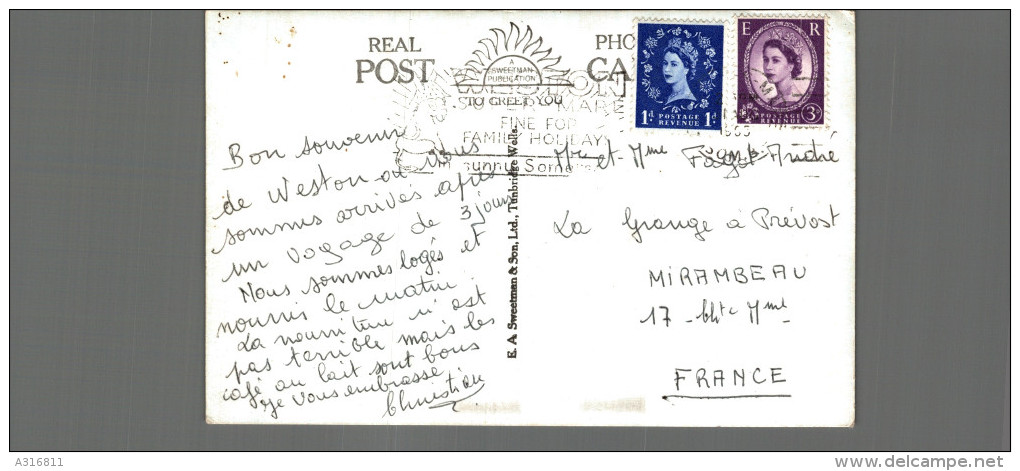 REAL PHO
POST CA
A
SWEETMAN
PUBLICATION
TO GREET YOU
WESTON
SUPER MARE
FINE FOR
FAMILY HOLIDAYS
in sunny Somerset
E R
1D POSTAGE REVENUE 1D
POSTAGE REVENUE 3D
Bon souvenir
de Weston où nous
sommes arrivés après
un voyage de 3 jours
Nous sommes logés et
nourris le matin.
La nourriture n'est
pas terrible mais les
café au lait sont bons
Je vous embrasse
Christian
E. A. Sweetman & Son, Ltd., Tunbridge Wells.
Mr et Mme André
La Grange à Prévost
MIRAMBEAU
17 - Chte Mme
FRANCE
A316811
delcampe.net